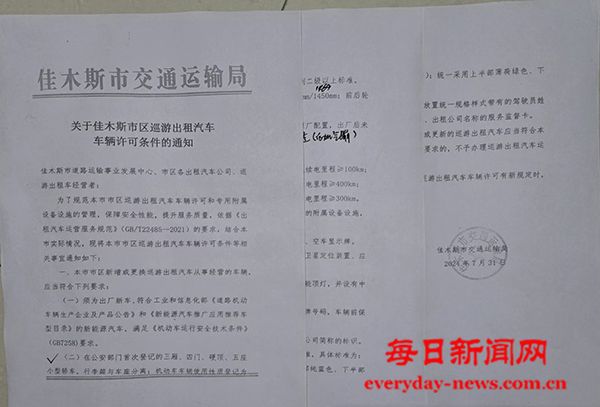 佳木斯市交通运输局
关于佳木斯市区巡游出租汽车
车辆许可条件的通知
佳木斯市道路运输事业发展中心、市区各出租汽车公司、巡
游出租车经营者：
为了规范本市市区巡游出租汽车车辆许可和专用附属
设备设施的管理，保障安全性能，提升服务质量，依据《出
租汽车运营服务规范》(GB/T22485—2021)的要求，结合本
市实际情况，现将本市市区巡游出租汽车车辆许可条件等相
关事宜通知如下：
一、本市市区新增或更换巡游出租汽车从事经营的车辆，
应当符合下列要求：
（一）须为出厂新车，符合工业和信息化部《道路机动
车辆生产企业及产品公告》和《新能源汽车推广应用推荐车
型目录》的新能源汽车，满足《机动车运行安全技术条件》
(GB7258)要求。
（二）在公安部门首次登记的三厢、四门、硬顶、五座
小型轿车，行李厢与车座分离；机动车车辆使用性质登记为
到二级以上标准。
mm/1450mm；前后轮
厂配置，出厂后未
续电里程≥100km；
电里程≥400km；
电里程≥300km。
的附属设备设施，
、空车显示牌。
卫星定位装置、应
能顶灯，并设有中
牌号码，车辆前保
公司简称的标识。
准，具体标准为：
部纯蓝色、下半部
）：统一采用上半部薄荷绿色、下
放置统一规格样式带有的驾驶员姓
、出租公司名称的服务监督卡。
或更新的巡游出租汽车应当符合本
要求的，不予办理巡游出租汽车运
巡游出租汽车车辆许可有新规定时，
佳木斯市交通运输局
2024年7月31日
每日新闻网
everyday-news.com.cn